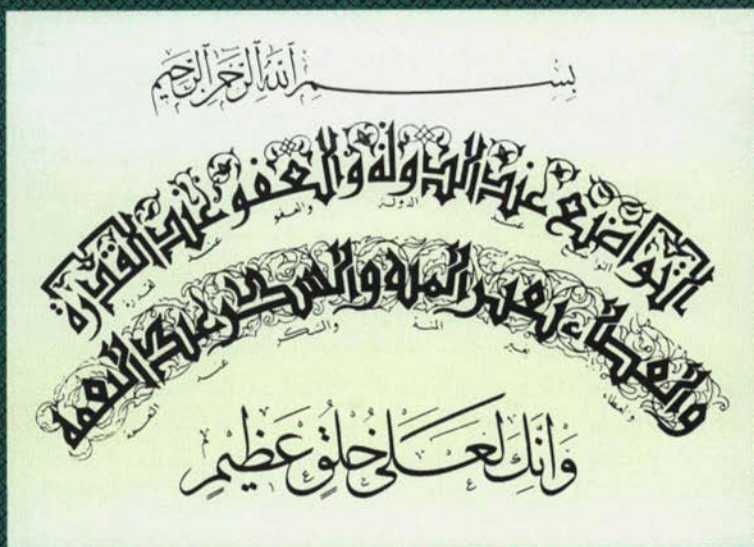 بِسْمِ اللَّهِ الرَّحْمَٰنِ الرَّحِيمِ
التواضع عند الدولة والعفو عند القدرة
والعطاء بغير المنة والشكر عند النعمة
وَإِنَّكَ لَعَلَى خُلُقٍ عَظِيمٍ